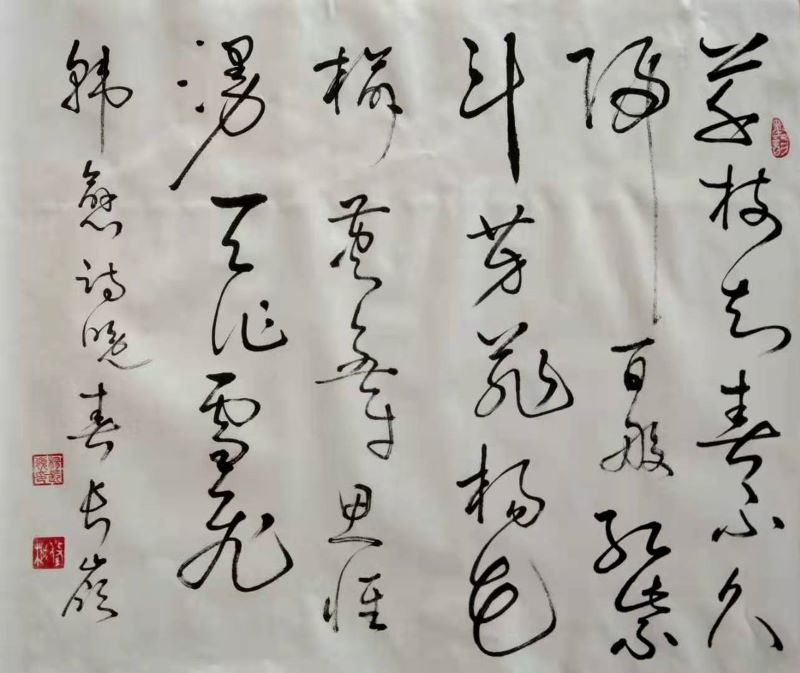 草树知春不久
归百般红紫
斗芳菲杨花
榆荚无才思惟
漫天作雪飞
韩愈诗晚春长岭